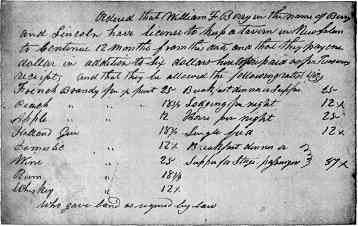 Ordered that William F Berry in the name of Berry
and Lincoln have license to keep a tavern in New Salem
to continue 12 months from this date and that they pay one
dollar in addition to six dollars heretofore paid as per Treasurers
receipt, and that they be allowed the following rates viz
French Brandy per ½ pint 25 Breakfast dinner or Supper 25
Peach " " " 18¾ Lodging per night 12½
Apple " " " 12 Horse per night 25
Holland Gin " " 18¾ Single feed 12½
Domestic " " 12½ Breakfast dinner or
Wine " " 25 Supper for Stage passengers 37½
Rum " " 18¾
Whiskey " " 12½
Who gave bond as required by law